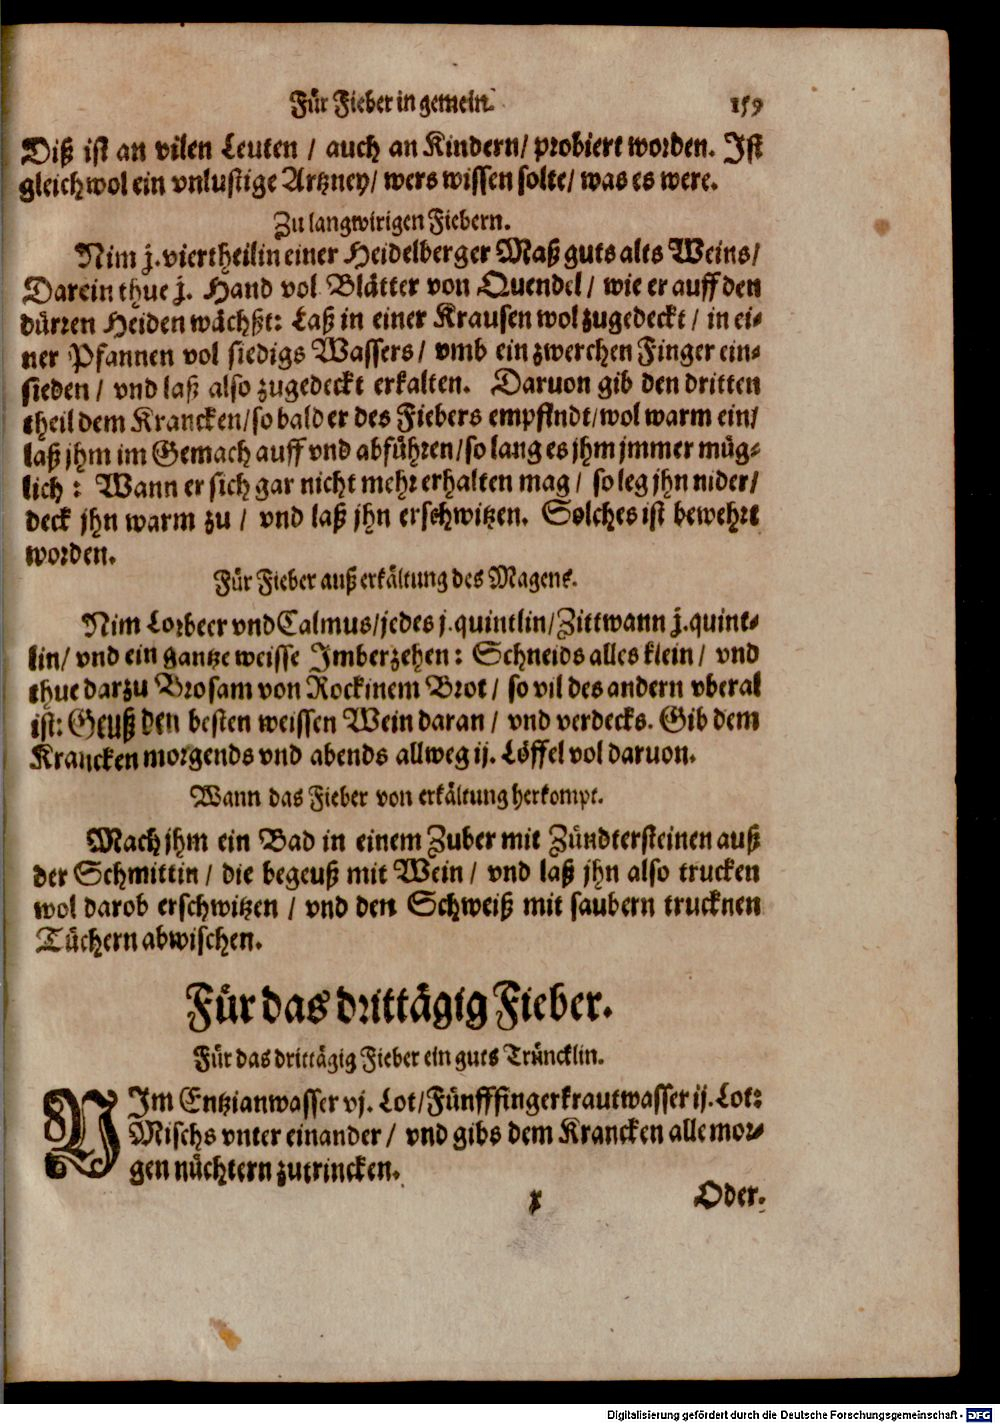 Für Fieber in gemein. 159
Diß ist an vilen Leuten / auch an Kindern / probiert worden. Ist
gleichwol ein vnlustige Artzney / wers wissen solte / was es were.
Zu langwirigen Fiebern.
Nim j. viertheil in einer Heidelberger Maß guts alts Weins /
Darein thue j. Hand vol Blätter von Quendel / wie er auff den
dürren Heiden wächßt: Laß in einer Krausen wol zugedeckt / in ei-
ner Pfannen vol siedigs Wassers / vmb ein zwerchen Finger ein-
sieden / vnd laß also zugedeckt erkalten. Daruon gib den dritten
theil dem Krancken / so bald er des Fiebers empfindt / wol warm ein /
laß jhm im Gemach auff vnd abführen / so lang es jhm jmmer müg-
lich : Wann er sich gar nicht mehr erhalten mag / so leg jhn nider /
deck jhn warm zu / vnd laß jhn erschwitzen. Solches ist bewehrt
worden.
Für Fieber auß erkältung des Magens.
Nim Lorbeer vnd Calmus / jedes j. quintlin / Zittwann j. quint-
lin / vnd ein gantze weisse Imberzehen : Schneids alles klein / vnd
thue darzu Brosam von Rockinem Brot / so vil des andern vberal
ist: Geuß den besten weissen Wein daran / vnd verdecks. Gib dem
Krancken morgends vnd abends allweg ij. Löffel vol daruon.
Wann das Fieber von erkältung herkompt.
Mach jhm ein Bad in einem Zuber mit Zündtersteinen auß
der Schmittin / die begeuß mit Wein / vnd laß jhn also trucken
wol darob erschwitzen / vnd den Schweiß mit saubern trucknen
Tüchern abwischen.
Für das drittägig Fieber.
Für das drittägig Fieber ein guts Träncklin.
NIm Entzianwasser vj. Lot / Fünfffingerkrautwasser ij. Lot:
Mischs vnter einander / vnd gibs dem Krancken alle mor-
gen nüchtern zutrincken.
x Oder.
Digitalisierung gefördert durch die Deutsche Forschungsgemeinschaft - DFG